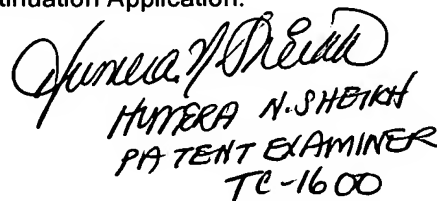 tinuation Application.
Humera N. Sheikh
HUMERA N. SHEIKH
PATENT EXAMINER
TC-1600